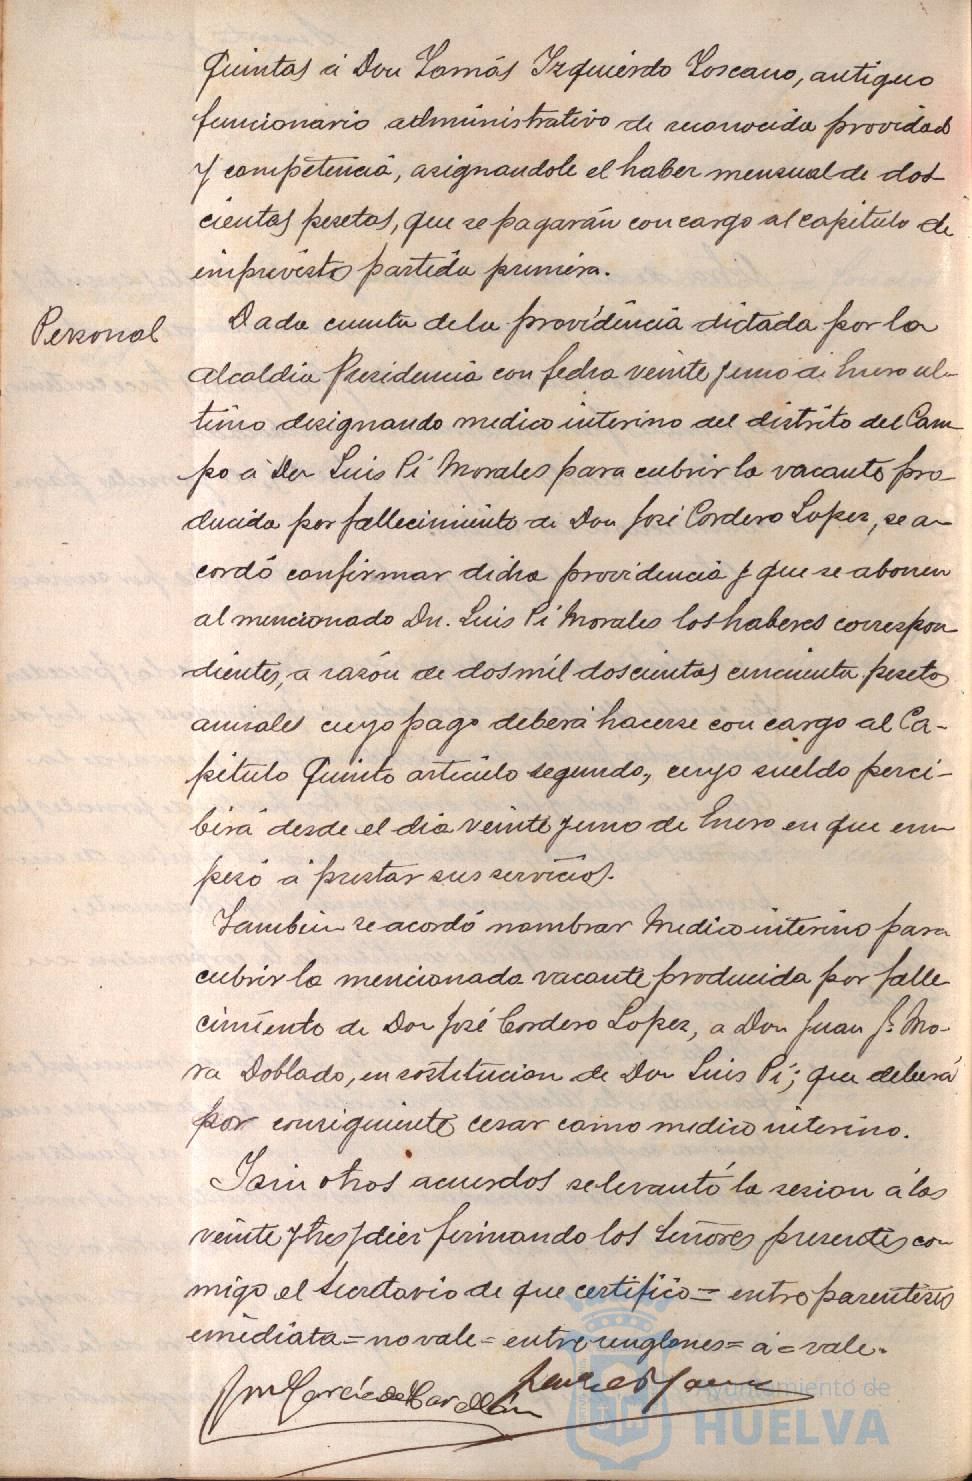 Quintas á Don Tomás Izquierdo Toscano, antiguo
funcionario administrativo de reconocida providad
y competencia, asignandole el haber mensual de dos-
cientas pesetas, que se pagarán con cargo al capitulo de
imprevistos partida primera.
Personal
Dada cuenta de la providencia dictada por la
Alcaldia Presidencia con fecha veinte y uno de Enero ul-
timo designando medico interino del distrito del Cam-
po á Don Luis Pí Morales para cubrir la vacante pro-
ducida por fallecimiento de Don José Cordero Lopez, se a-
cordó confirmar dicha providencia y que se abonen
al mencionado Dn. Luis Pí Morales los haberes correspon
dientes, a razón de dos mil doscientas cincuenta pesetas
anuales cuyo pago deberá hacerse con cargo al Ca-
pitulo Quinto articulo segundo, cuyo sueldo perci-
birá desde el dia veinte y uno de Enero en que em
pezó á prestar sus servicios.
Tambien se acordó nombrar Medico interino para
cubrir la mencionada vacante producida por falle
cimiento de Don José Cordero Lopez, a Don Juan Jº Mo-
ra Doblado, en sostitucion de Don Luis Pí; que deberá
por consiguiente cesar como medico interino.
Y sin otros acuerdos se levantó la sesion á las
veinte y tres y diez firmando los Señores presentes con
migo el Secretario de que certifico = entre parentesis
emediata = no vale = entre renglones = á = vale.
Ayuntamiento de
HUELVA